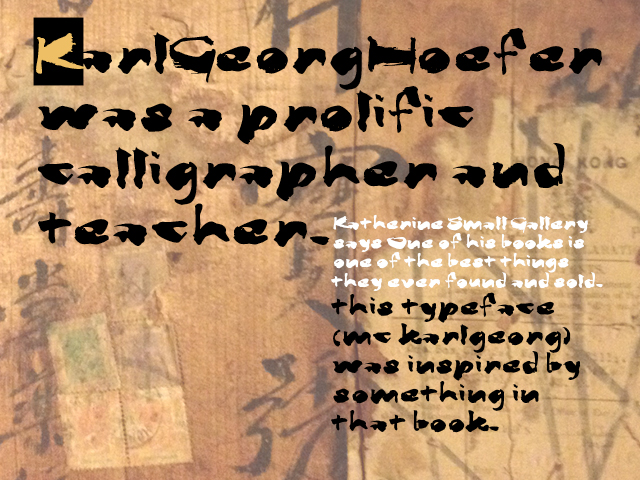 KarlGeorgHoefer
was a prolific
calligrapher and
teacher.
Katherine Small Gallery
says One of his books is
one of the best things
they ever found and sold.
this typeface
(mc karlgeorg)
was inspired by
something in
that book.
KONG